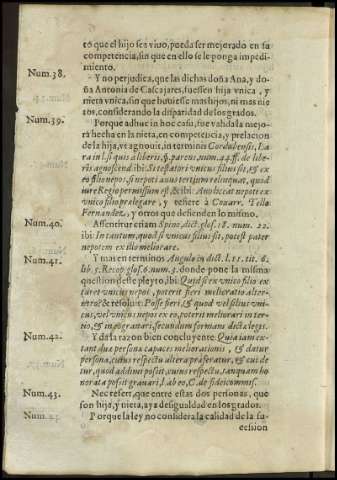 to que el hijo sea viuo, pueda ser mejorado en su
competencia, sin que en ello se le ponga impedi-
miento.
Num.38. Y no perjudica, que las dichas doña Ana, y do-
ña Antonia de Cascajares, fuessen hija vnica, y
nieta vnica, sin que huuiesse mas hijos, ni mas nie
tos, considerando la disparidad de los grados.
Num.39. Porque adhuc in hoc casu, fue valida la mejo-
ra hecha en la nieta, en competencia, y prelacion
de la hija, vt agnouit, in terminis Cordubensis, La
ra in l. si quis a liberis, §. parens, num. 44. ff. de libe-
ris agnoscend. ibi: Si testatori vnicus filius sit, & ex
eo filio nepos, si nepoti auus tertium relinquat, quod
iure Regio permissum est, & ibi: An liceat nepoti ex
vnico filio prælegare, y refiere à Couarr. Tello
Fernandez, y otros que defienden lo mismo.
Num.40. Assentitur etiam Spino, dict. glos. 18. num. 22.
ibi: In tantum, quod si vnicus filius sit, potest pater
nepotem ex illo meliorare.
Num.41. Y mas en terminos Angulo in dict. l. 11. tit. 6.
lib. 5. Recop. glos. 6. num. 3. donde pone la misma
question deste pleyto, ibi: Quid si ex vnico filio ex
taret vnicus nepos, poterit fieri melioratio alte-
ro? & resoluit: Posse fieri, & quod vel filius vni-
cus, vel vnicus nepos ex eo, poterit meliorari in ter-
tio, & in eo grauari, secundum formam dictæ legis.
Num.42. Y da la razon bien concluyente: Quia iam ex-
tant duæ personæ capaces meliorationis, & datur
persona, cuius respectu altera præferatur, & cui de
tur, quod additur possit, cuius respectu, tanquam ho
norata possit grauari, l. ab eo, C. de fideicommis.
Num.43. Nec refert, que entre estas dos personas, que
son hija, y nieta, aya desigualdad en los grados.
Porque la ley no considera la calidad de la su-
cession